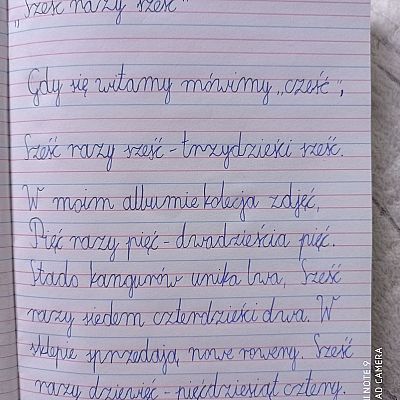 „Sześć razy sześć"
Gdy się witamy mówimy „cześć",
Sześć razy sześć - trzydzieści sześć.
W moim albumie kolecja zdjęć,
Pięć razy pięć - dwadzieścia pięć.
Stado kangurów unika lwa, Sześć
razy siedem czterdzieści dwa. W
sklepie sprzedają, nowe rowery. Sześć
razy dziewięć - pięćdziesiąt cztery.
NOTE 9
AD CAMERA